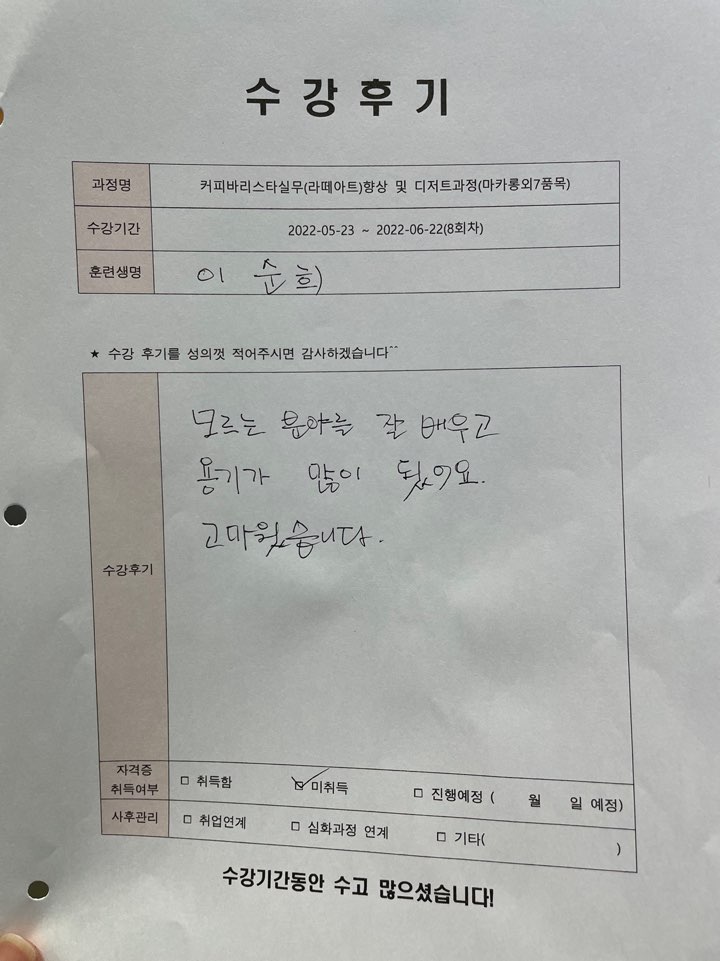 수강후기
과정명 커피바리스타실무(라떼아트)향상 및 디저트과정(마카롱외7품목)
수강기간 2022-05-23 ~ 2022-06-22(8회차)
훈련생명 이순희
★ 수강 후기를 성의껏 적어주시면 감사하겠습니다^^
수강후기
모르는 분야를 잘 배우고
용기가 많이 됬어요.
고마웠습니다.
자격증 취득여부 □ 취득함 ☑ 미취득 □ 진행예정 ( 월 일 예정)
사후관리 □ 취업연계 □ 심화과정 연계 □ 기타( )
수강기간동안 수고 많으셨습니다!